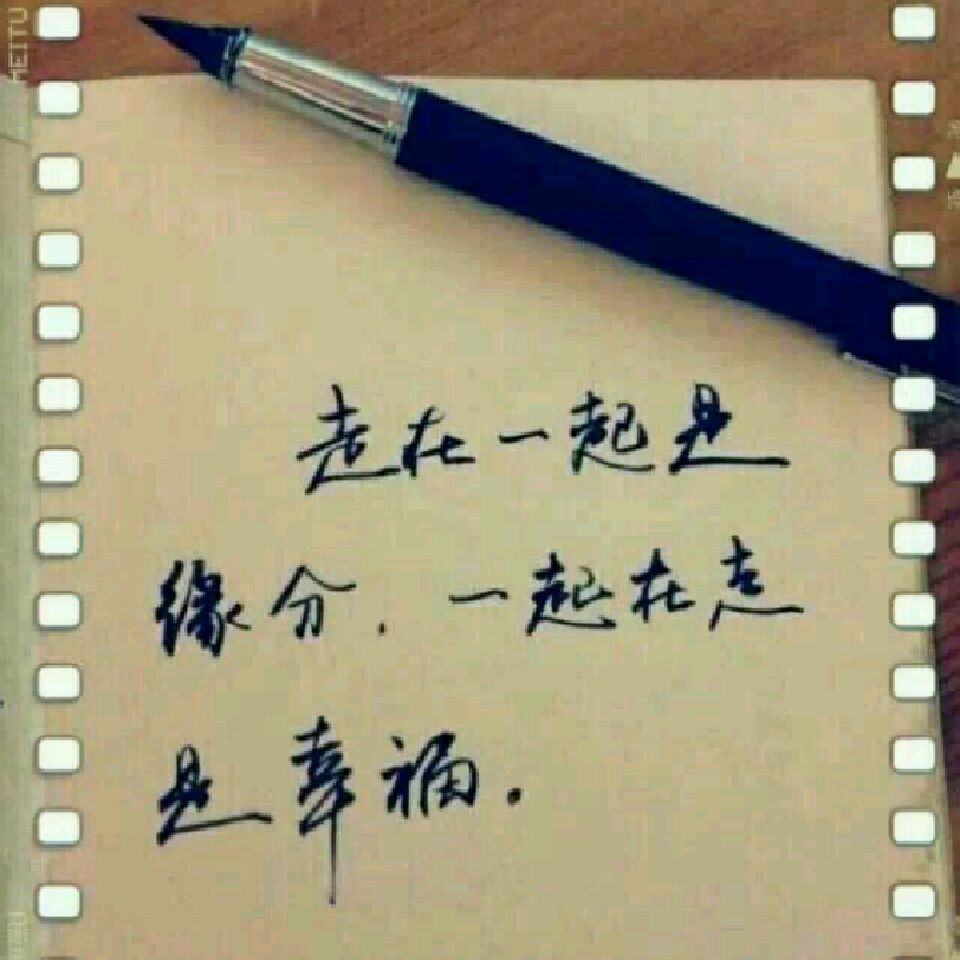 MEITU
走在一起是
缘分,一起在走
是幸福.